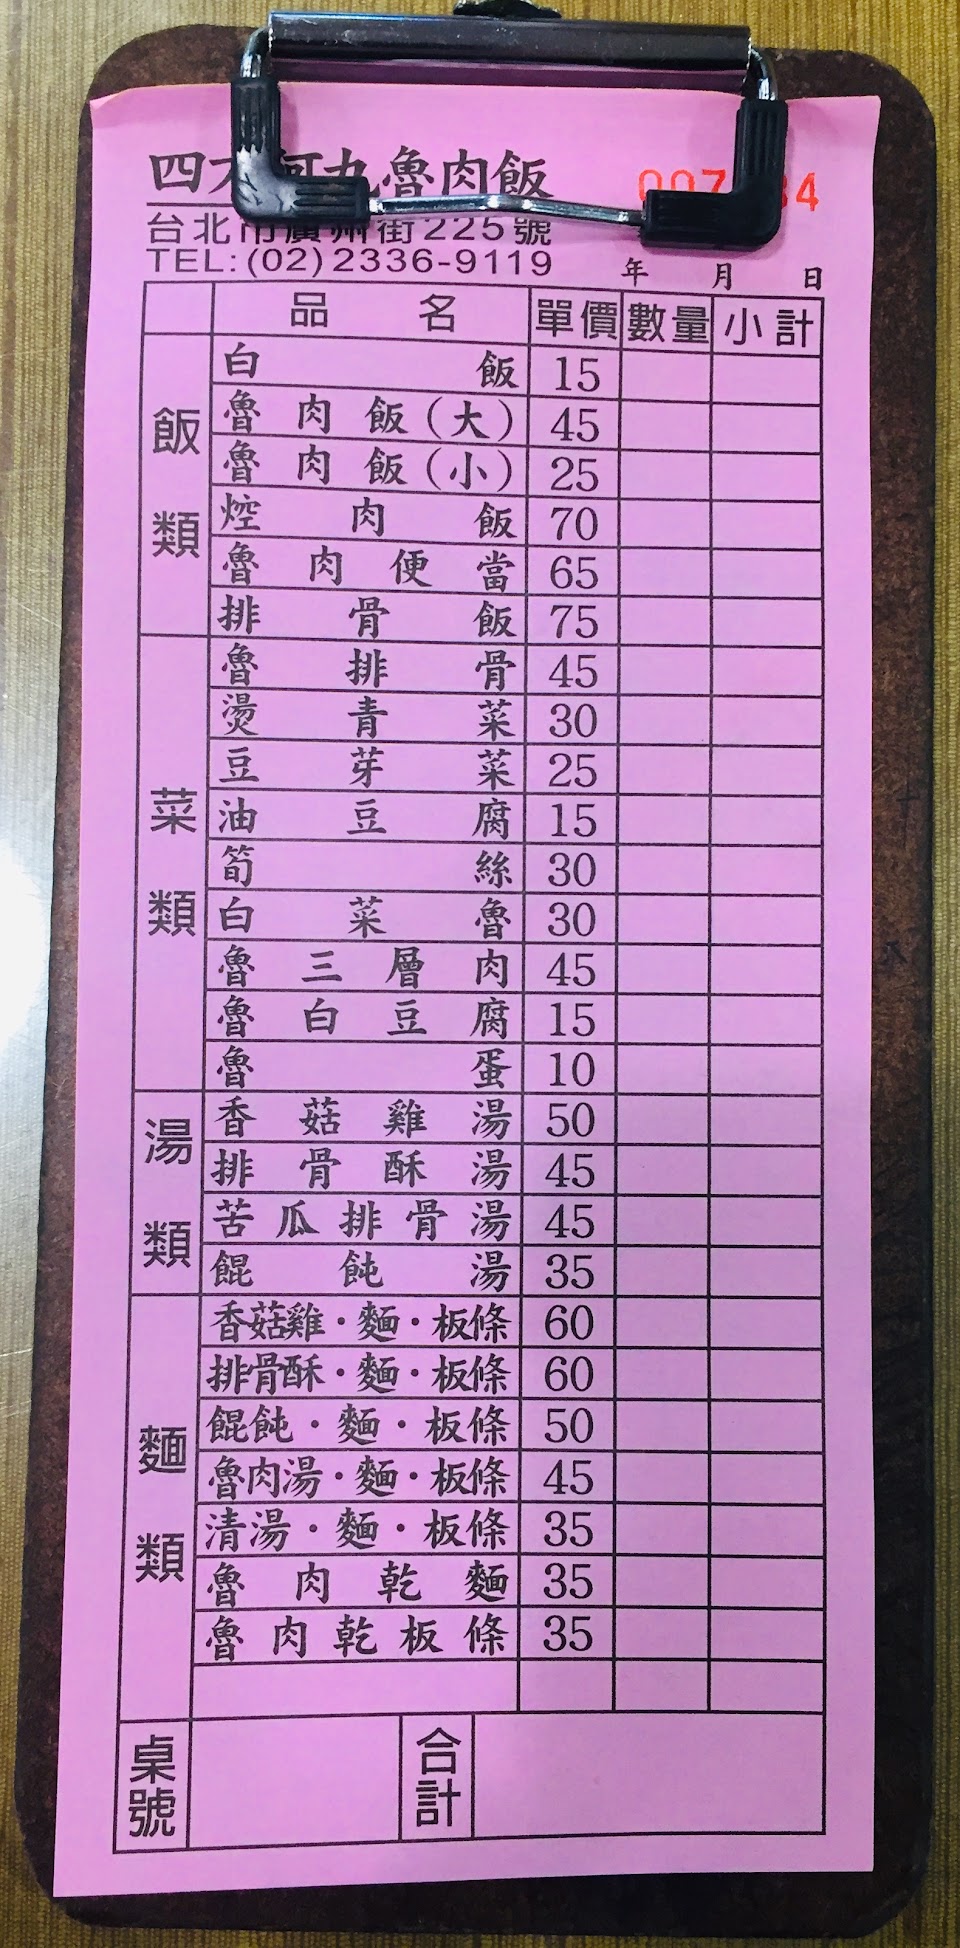 四 九魯肉飯
台北市廣州街225號
TEL:(02)2336-9119
年 月 日
品名 單價 數量 小計
飯類
白飯 15
魯肉飯(大) 45
魯肉飯(小) 25
焢肉飯 70
魯肉便當 65
排骨飯 75
菜類
魯排骨 45
燙青菜 30
豆芽菜 25
油豆腐 15
筍絲 30
白菜魯 30
魯三層肉 45
魯白豆腐 15
魯蛋 10
湯類
香菇雞湯 50
排骨酥湯 45
苦瓜排骨湯 45
餛飩湯 35
麵類
香菇雞·麵·板條 60
排骨酥·麵·板條 60
餛飩·麵·板條 50
魯肉湯·麵·板條 45
清湯·麵·板條 35
魯肉乾麵 35
魯肉乾板條 35
桌號 合計